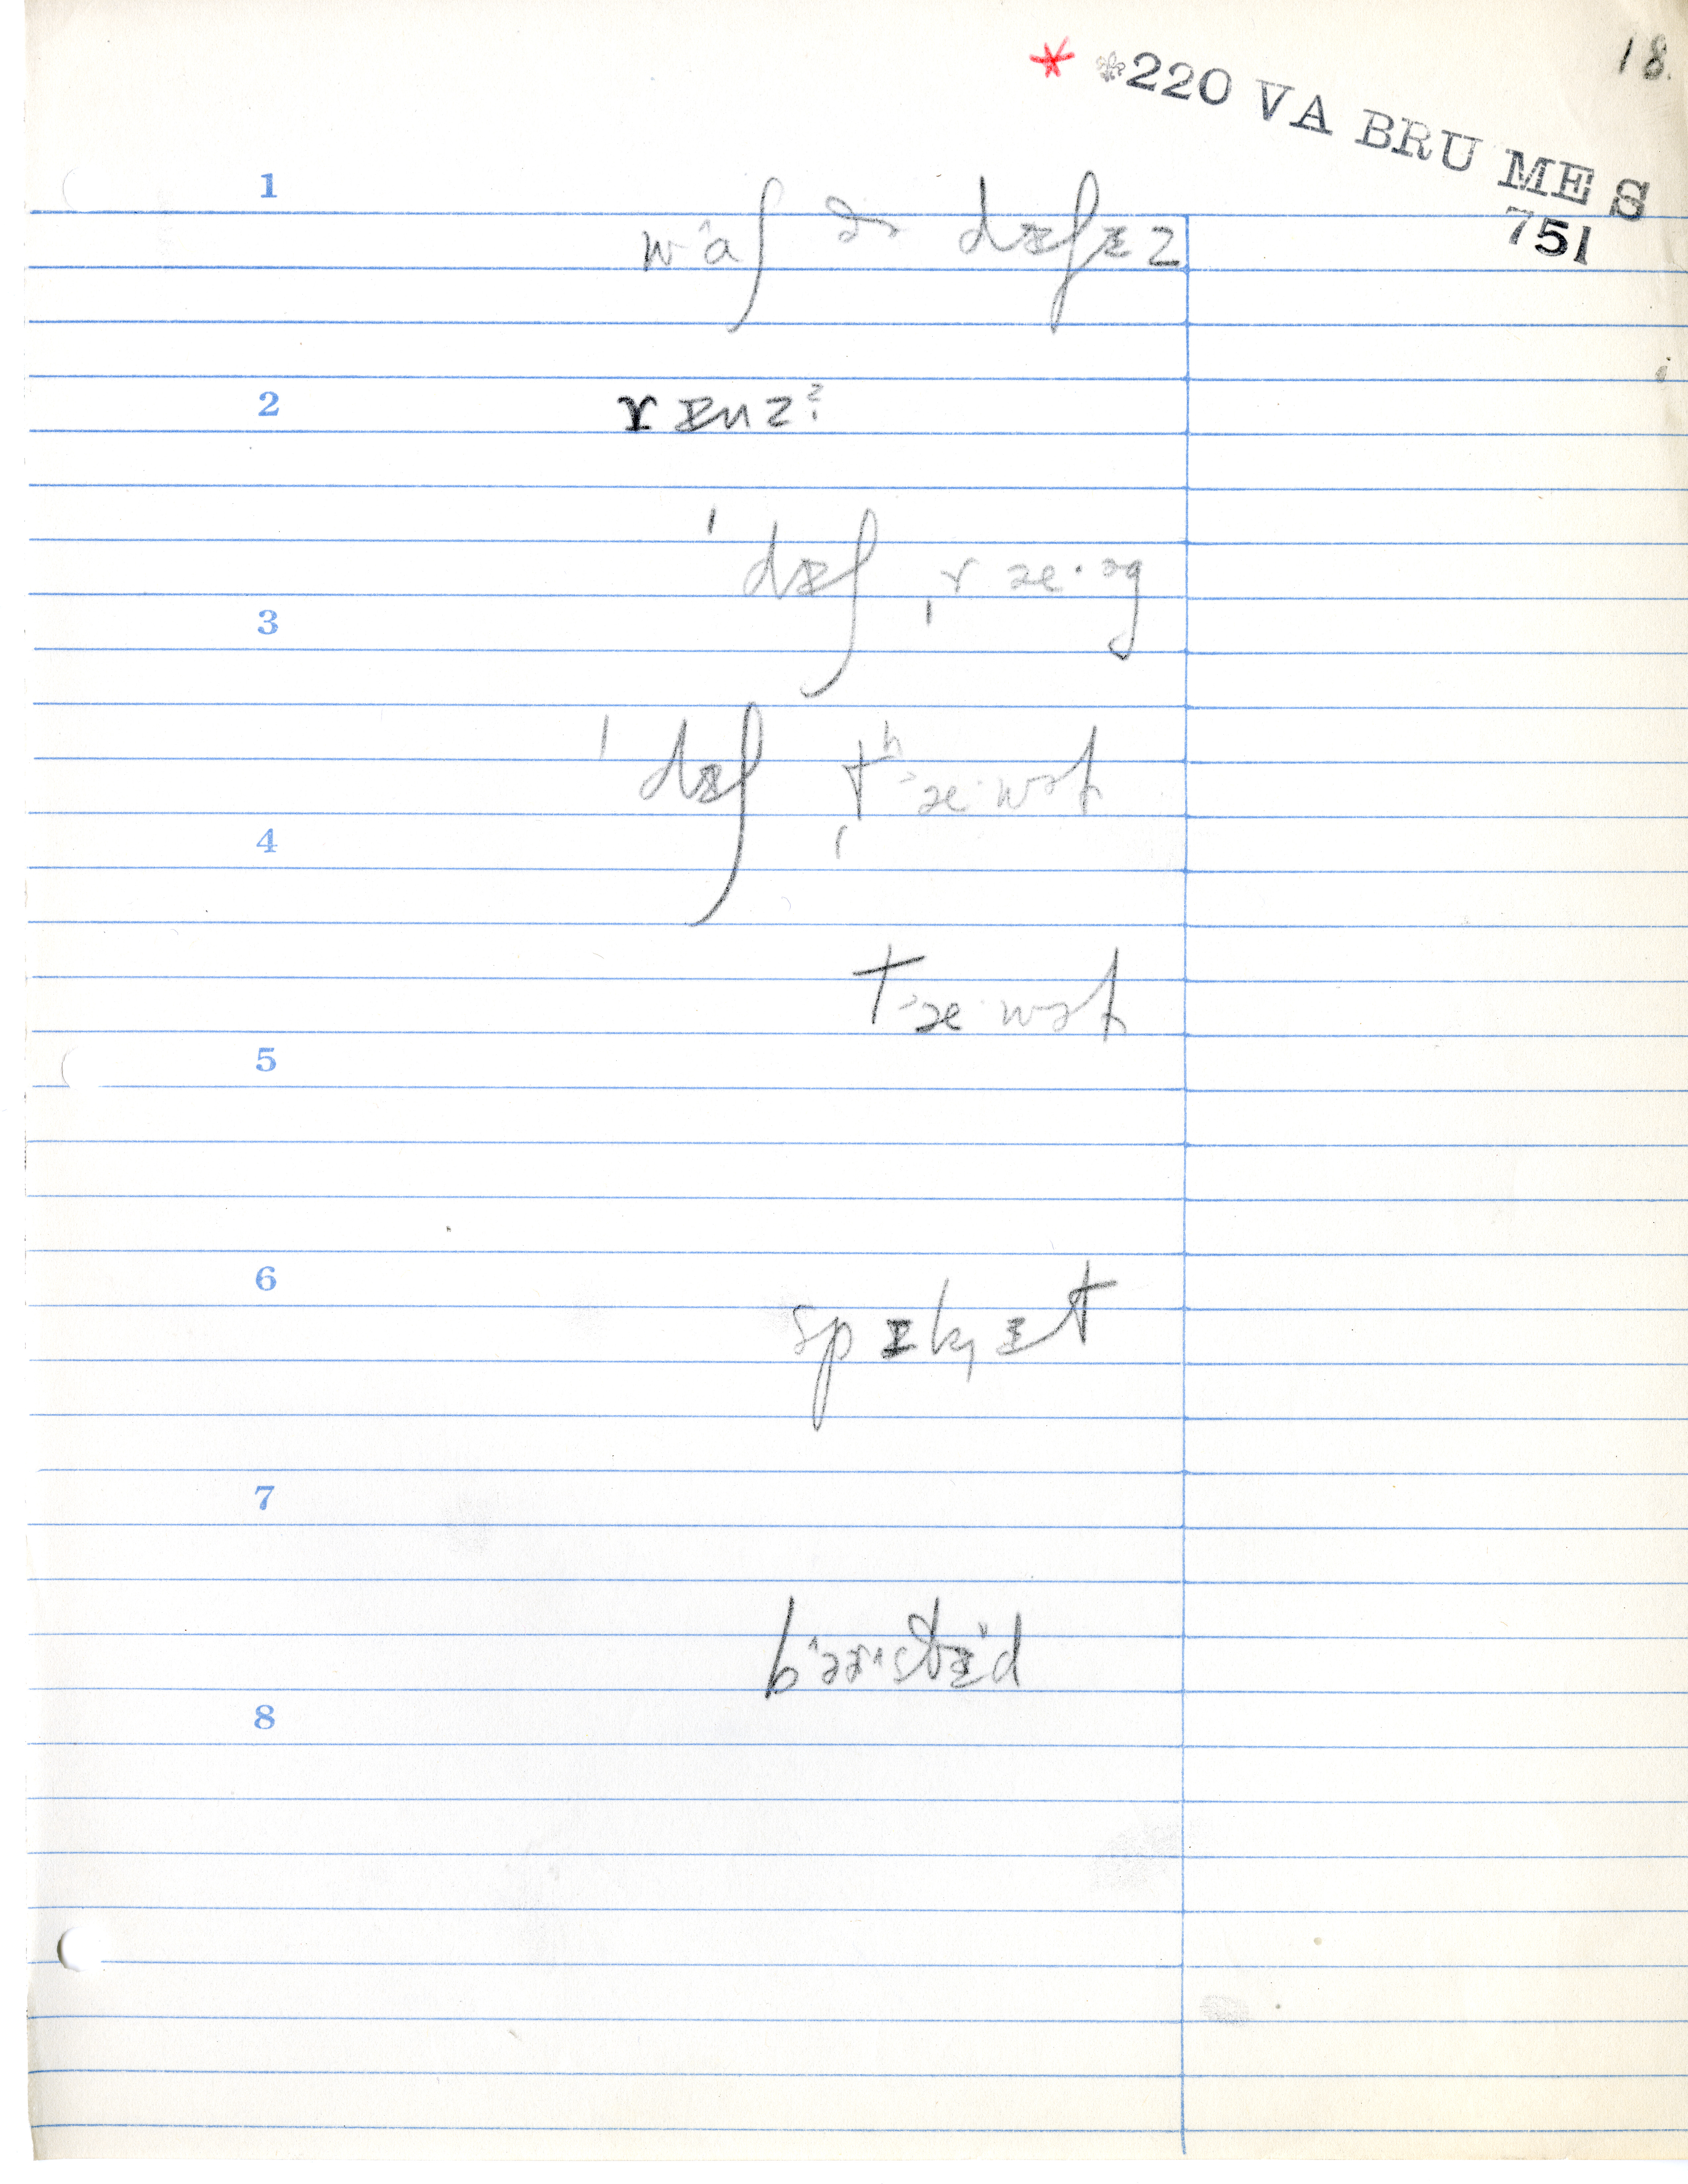 18.
* ⚜220 VA BRU MES
751
1
wɑʃ ðə dɪʃɪz
2
rɪnz?
ˈdɪʃ ˌræ·əg
3
ˈdɪʃ ˌtʰæ·wəl
4
tæ·wəl
5
6
spɪkɪt
7
8